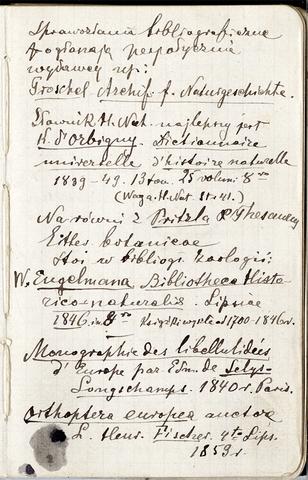 Sprawozdania bibliograficzne
ogłaszają peryodycznie
wydawcy np:
Troschel Archif. f. Naturgeschichte.
Słownik H. Nat. najlepszy jest
H. d'Orbigny. Dictionnaire
universelle d'histoire naturelle
1839-49. 13 tom. 25 volum: 8vo
Na równi z Pritzla Thesaurus
stoi w bibliogr. zoologii:
W. Engelmana Bibliotheca Histo-
rico-naturalis. Lipsiae
1846. in 8vo 1700-1846 r.
Monographie des libellulidées
d'Europe par Edm. de Selys-
Longschamps. 1840 r. Paris.
Orthoptera europea auctore
L. Henr. Fischer. 4to Lips.
1853 r.